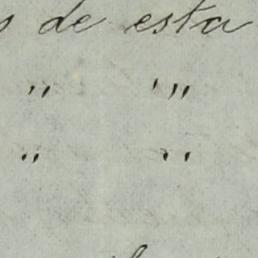 de esta
" "
" "